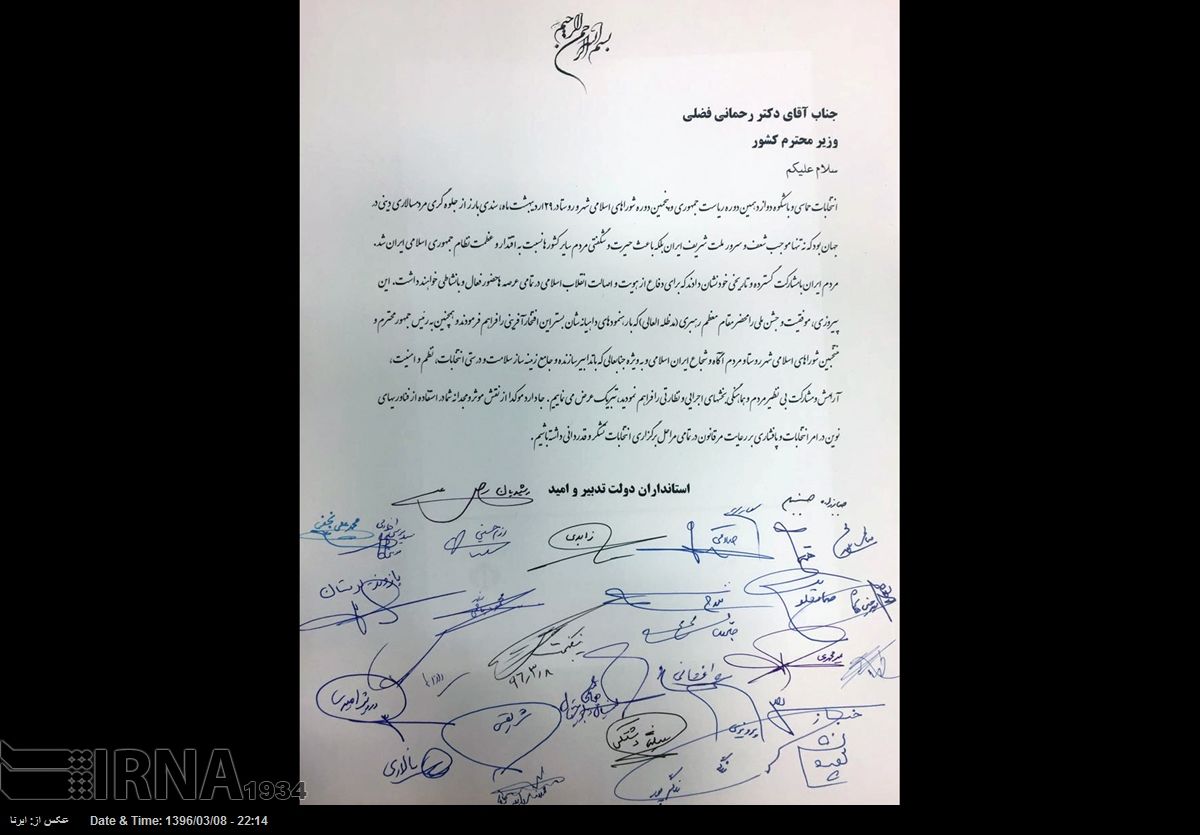 بسم الله الرحمن الرحیم
جناب آقای دکتر رحمانی فضلی
وزیر محترم کشور
سلام علیکم
انتخابات حماسی و باشکوه دوازدهمین دوره ریاست جمهوری و پنجمین دوره شوراهای اسلامی شهر و روستا در ۲۹ اردیبهشت ماه، سندی بارز از جلوه گری مردمسالاری دینی در
جهان بود که نه تنها موجب شعف و سرور ملت شریف ایران بلکه باعث حیرت و شگفتی مردم سایر کشورها نسبت به اقتدار و عظمت نظام جمهوری اسلامی ایران شد.
مردم ایران با مشارکت گسترده و تاریخی خود نشان دادند که برای دفاع از هویت و اصالت انقلاب اسلامی در تمامی عرصه ها حضور فعال و بانشاطی خواهند داشت. این
پیروزی، موفقیت و جشن ملی را محضر مقام معظم رهبری (مدظله العالی) که با رهنمودهای داهیانه شان بستر این افتخارآفرینی را فراهم فرمودند و همچنین به رئیس جمهور محترم و
منتخبین شوراهای اسلامی شهر و روستا و مردم آگاه و شجاع ایران اسلامی و به ویژه جنابعالی که با تدابیر سازنده و جامع زمینه ساز سلامت و درستی انتخابات، نظم و امنیت،
آرامش و مشارکت بی نظیر مردم و هماهنگی بخشهای اجرایی و نظارتی را فراهم نمودید، تبریک عرض می نماییم. جا دارد موکدا از نقش موثر و مجدانه شما در استفاده از فناوریهای
نوین در امر انتخابات و پافشاری بر رعایت مر قانون در تمامی مراحل برگزاری انتخابات تشکر و قدردانی داشته باشیم.
استانداران دولت تدبیر و امید
رشیدیان
محمدعلی نجفی
رزم حسینی
زاهدی
صادقی
بازوند لرستان
نیکبخت
۹۶/۳/۸
میرمحمدی
افشانی
درویش امیری
شریفی
پرویزی
خباز
سالاری
زرگر پور
IRNA 1934
عکس از: ایرنا
Date & Time: 1396/03/08 - 22:14